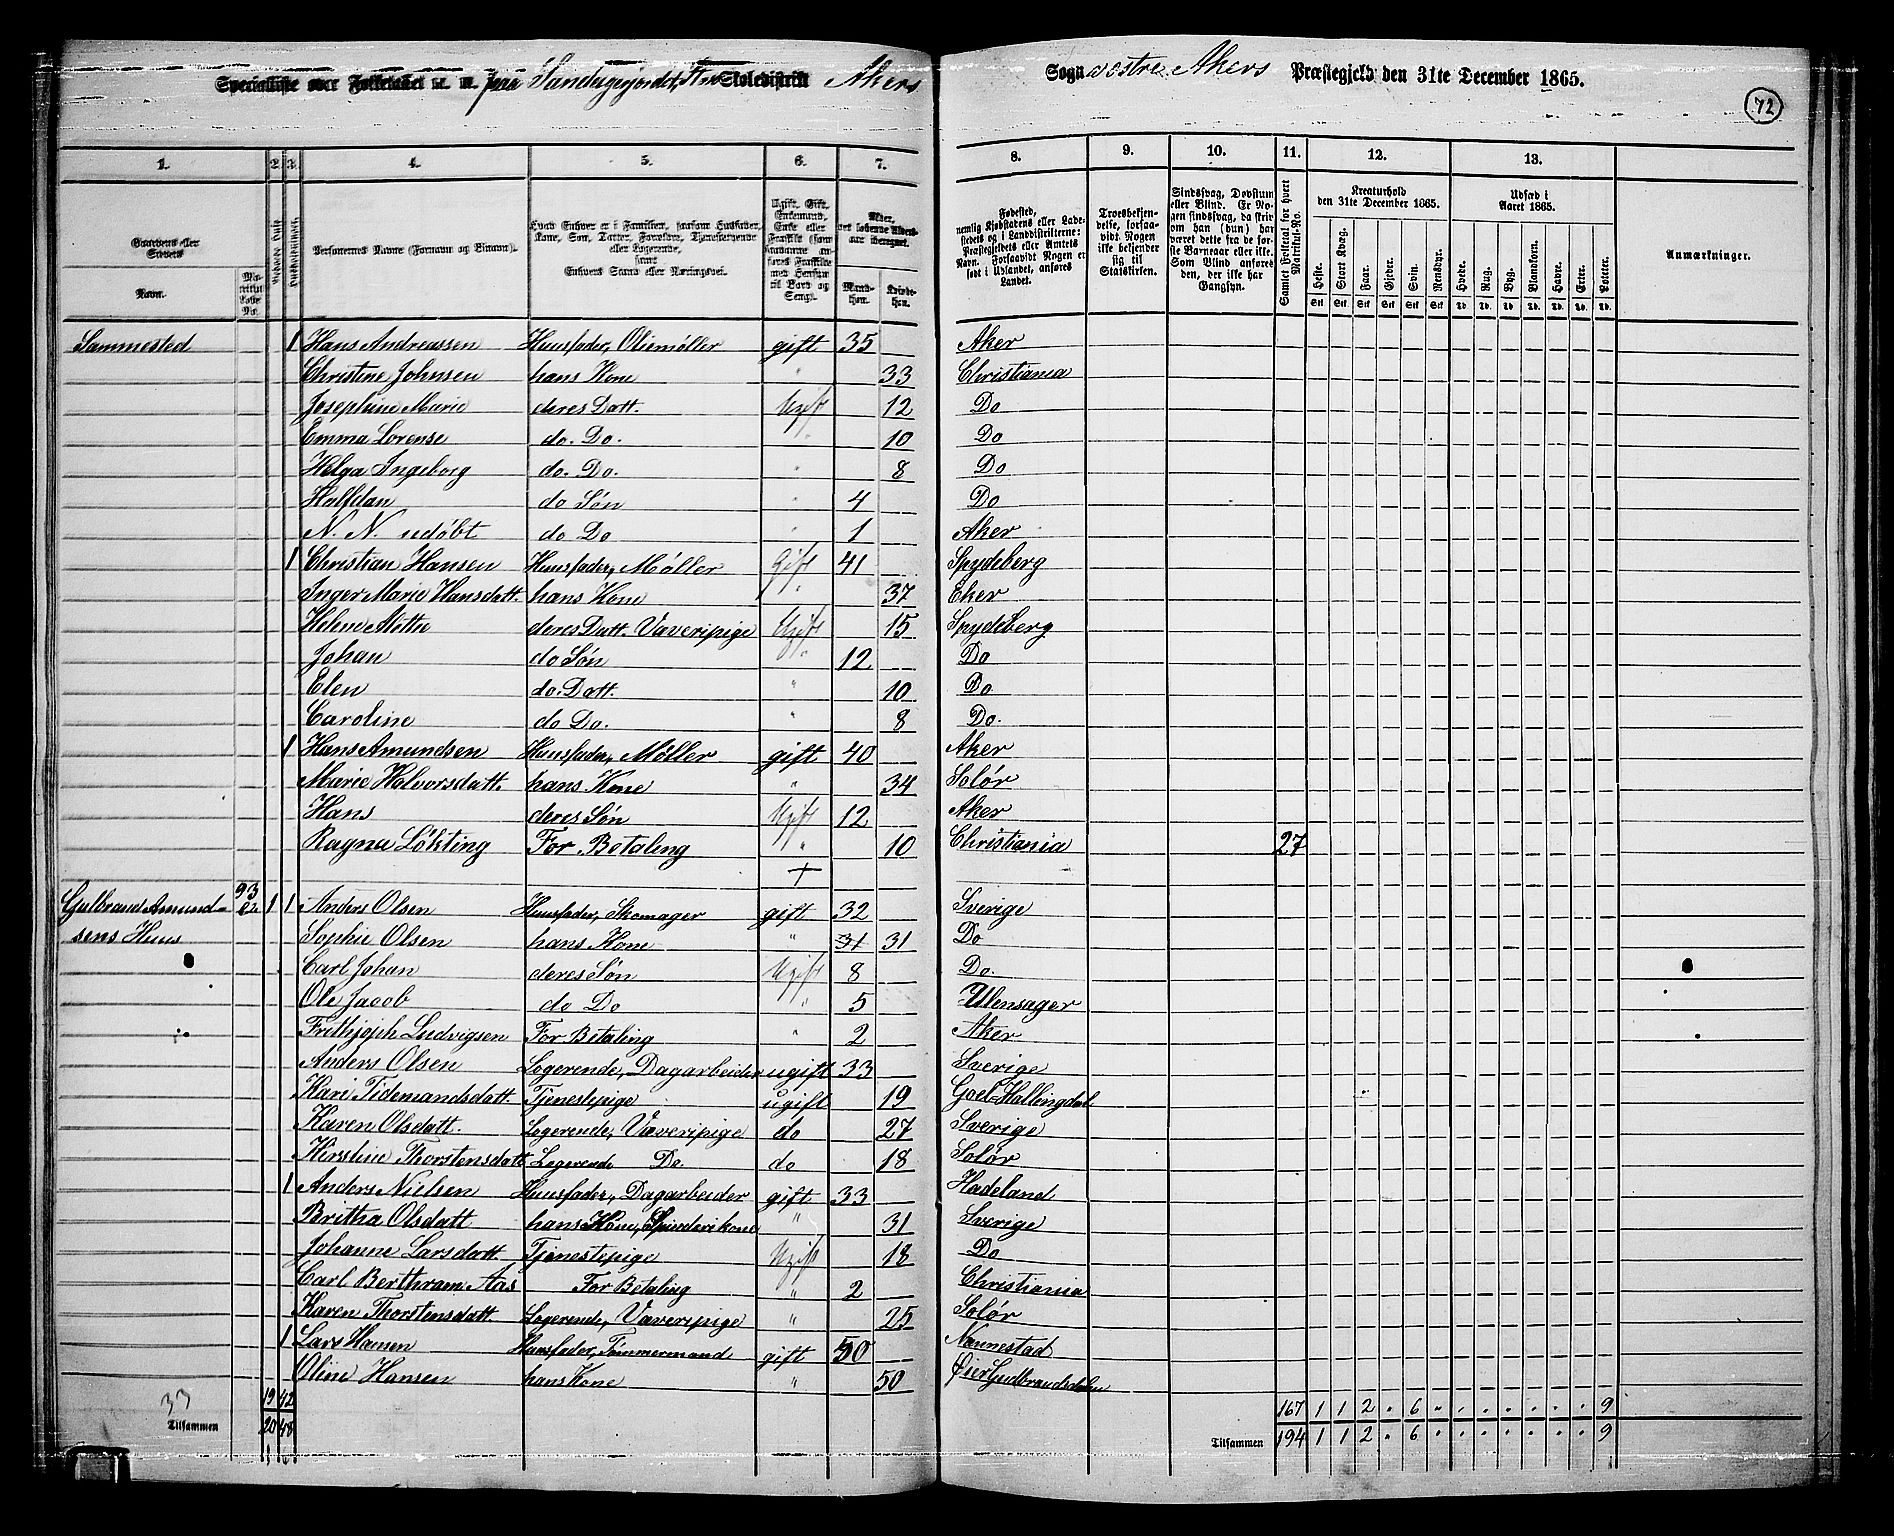 Specialliste over Folketallet m. m. paa Sandagerjordet, Skoledistrikt Akers Sogn vestre Akers Præstegjeld den 31te December 1865.
72
1. 2. 3. 4. 5. 6. 7. 8. 9. 10. 11. 12. 13.
Gaardens eller Stedets Navn.
Personernes Navne (Fornavn og Binavn).
Kreaturhold den 31te December 1865.
Udsæd i Aaret 1865.
Anmærkninger.
Heste. Stort Kvæg. Faar. Gjeder. Svin. Rensdyr. Hvede. Rug. Byg. Blandkorn. Havre. Erter. Poteter.
Sammested 1 Hans Andreassen Huusfader, Oliemøller gift 35 Aker
Christine Johnsen hans Kone " 33 Christiania
Josephine Marie deres Datt. Ugift 12 Do
Emma Lorense do. Do. " 10 Do
Helga Ingeborg do. Do. " 8 Do
Halfdan do Søn " 4 Do
N. N. udøbt do Do " 1 Aker
1 Christian Hansen Huusfader, Møller Gift 41 Spydeberg
Inger Marie Hansdatt. hans Kone " 37 Eker
Helene Mathea deres Datt. Væveripige Ugift 15 Spydeberg
Johan do Søn " 12 Do
Elen do. Datt. " 10 Do
Caroline do Do. " 8 Do.
1 Hans Amundsen Huusfader, Møller gift 40 Aker
Marie Halvorsdatt. hans Kone " 34 Solør
Hans deres Søn Ugift 12 Aker
Ragna Løkting For Betaling " 10 Christiania 27
+
Gulbrand Amund- 93 1 1 Anders Olsen Huusfader, Skomager gift 32 Sverige
sens Huus Sophie Olsen hans Kone " 31 31 Do
Carl Johan deres Søn Ugift 8 Do.
Ole Jacob do Do " 5 Ulensager
Frithjoph Ludvigsen For Betaling " 2 Aker
Anders Olsen Logerende, Dagarbeider ugift 33 Sverige
Kari Tidemandsdatt. Tjenestepige ugift 19 Goel-Hallingdal
Karen Olsdatt. Logerende, Væveripige do 27 Sverige
Kirstine Thorstensdatt Logerende Do. do 18 Solør
1 Anders Nielsen Huusfader, Dagarbeider gift 33 Hadeland
Britha Olsdatt hans Kone, Spinderikone " 31 Sverige
Johanne Larsdatt. Tjenestepige Ugift 18 Do
Carl Berthram Aas For Betaling " 2 Christiania
Karen Thorstensdatt. Logerende, Væveripige " 25 Solør
1 Lars Hansen Huusfader, Tømmermand gift 50 Nannestad
Oline Hansen hans Kone " 50 Øier Gudbrandsdalen
33 19 42 167 1 1 2 " 6 " " " " " " " 9
Tilsammen 20 48 Tilsammen 194 1 1 2 " 6 " " " " " " " 9